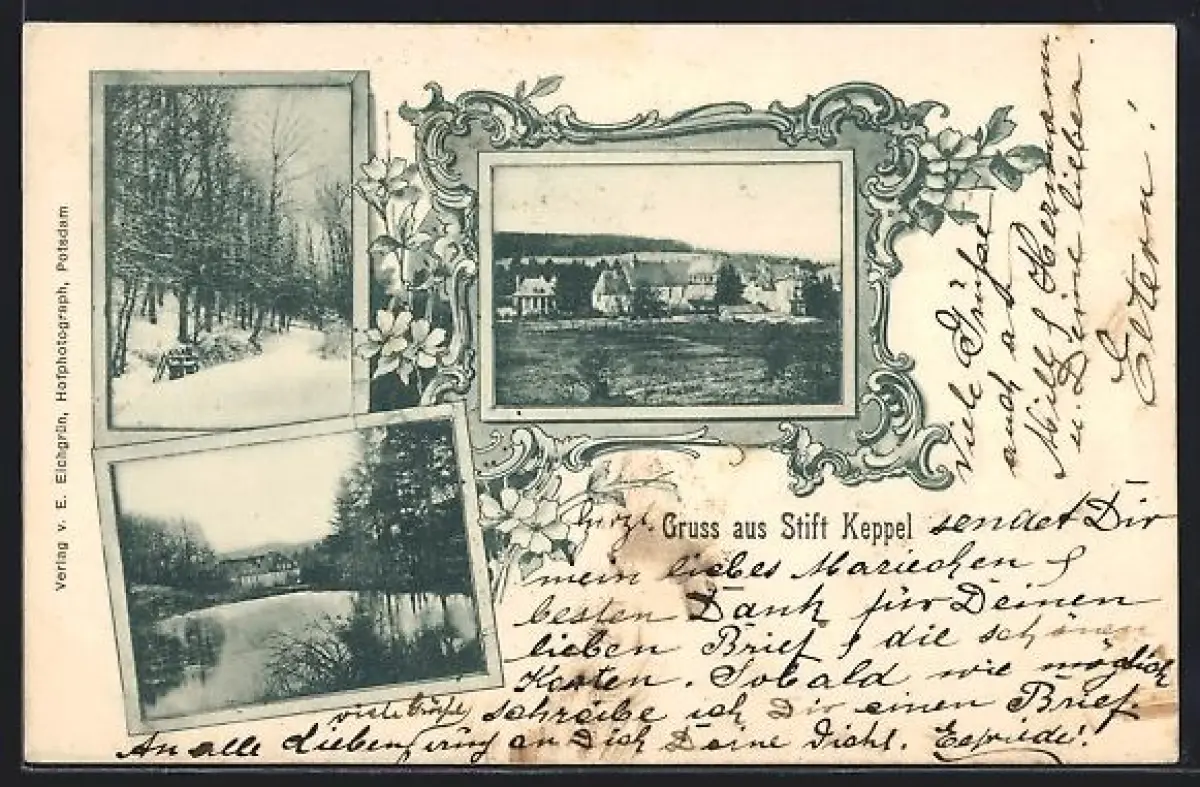 Verlag v. E. Eichgrün, Hofphotograph, Potsdam
herzl. Gruss aus Stift Keppel sendet Dir
mein liebes Mariechen
besten Dank für Deinen
lieben Brief die schönen
Karten. Sobald wie möglich
schreibe ich Dir einen Brief.
An alle Lieben viele Grüße an Dich Deine Dichl.
Viele Grüße
auch an
Willy Hermann
u. Deine lieben
Eltern!